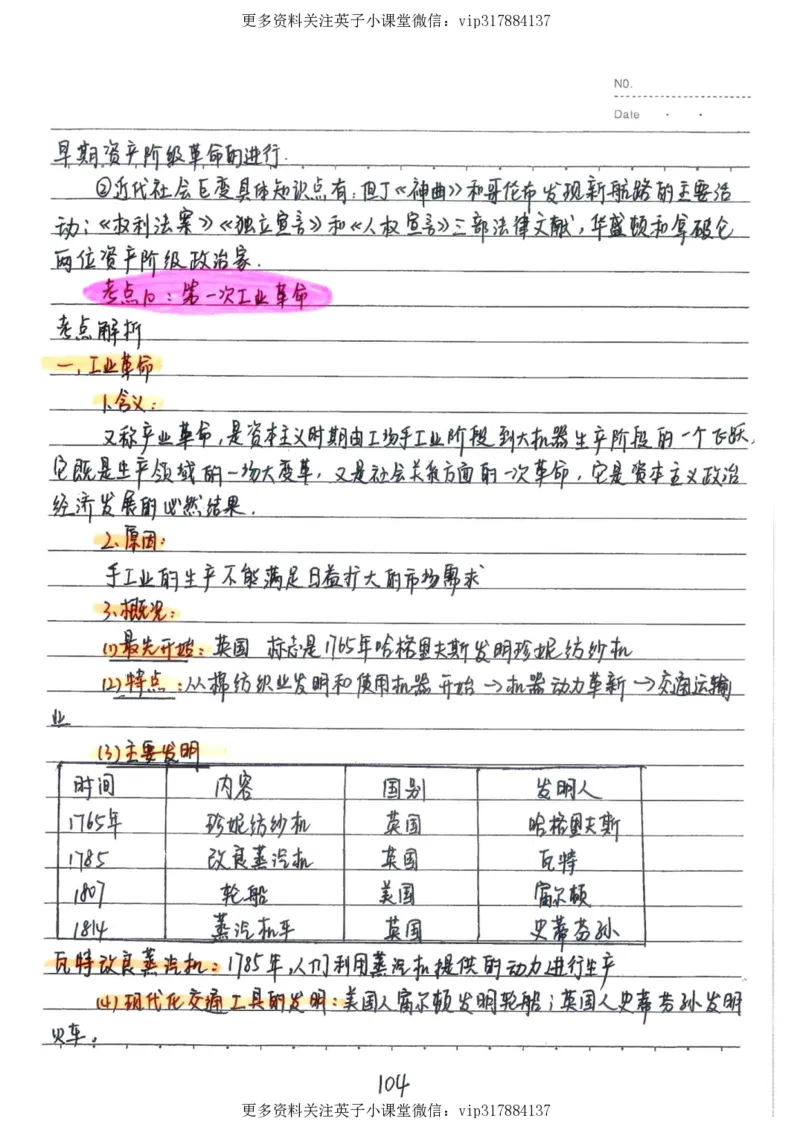 更多资料关注英子小课堂微信：vip317884137
NO.
Date
早期资产阶级革命的进行.
②近代社会巨变具体知识点有：但丁《神曲》和哥伦布发现新航路的主要活
动；《权利法案》《独立宣言》和《人权宣言》三部法律文献，华盛顿和拿破仑
两位资产阶级政治家.
考点10：第一次工业革命
考点解析
一，工业革命
1.含义：
又称产业革命，是资本主义时期由工场手工业阶段到大机器生产阶段的一个飞跃，
它既是生产领域的一场大变革，又是社会关系方面的一次革命，它是资本主义政治
经济发展的必然结果.
2.原因：
手工业的生产不能满足日益扩大的市场需求
3.概况：
(1)最先开始：英国 标志是1765年哈格里夫斯发明珍妮纺纱机
(2)特点：从棉纺织业发明和使用机器开始→机器动力革新→交通运输
业
(3)主要发明
时间 内容 国别 发明人
1765年 珍妮纺纱机 英国 哈格里夫斯
1785 改良蒸汽机 英国 瓦特
1807 轮船 美国 富尔顿
1814 蒸汽机车 英国 史蒂芬孙
瓦特改良蒸汽机：1785年，人们利用蒸汽机提供的动力进行生产
(4)现代化交通工具的发明：美国人富尔顿发明轮船；英国人史蒂芬孙发明
火车。
104
更多资料关注英子小课堂微信：vip317884137